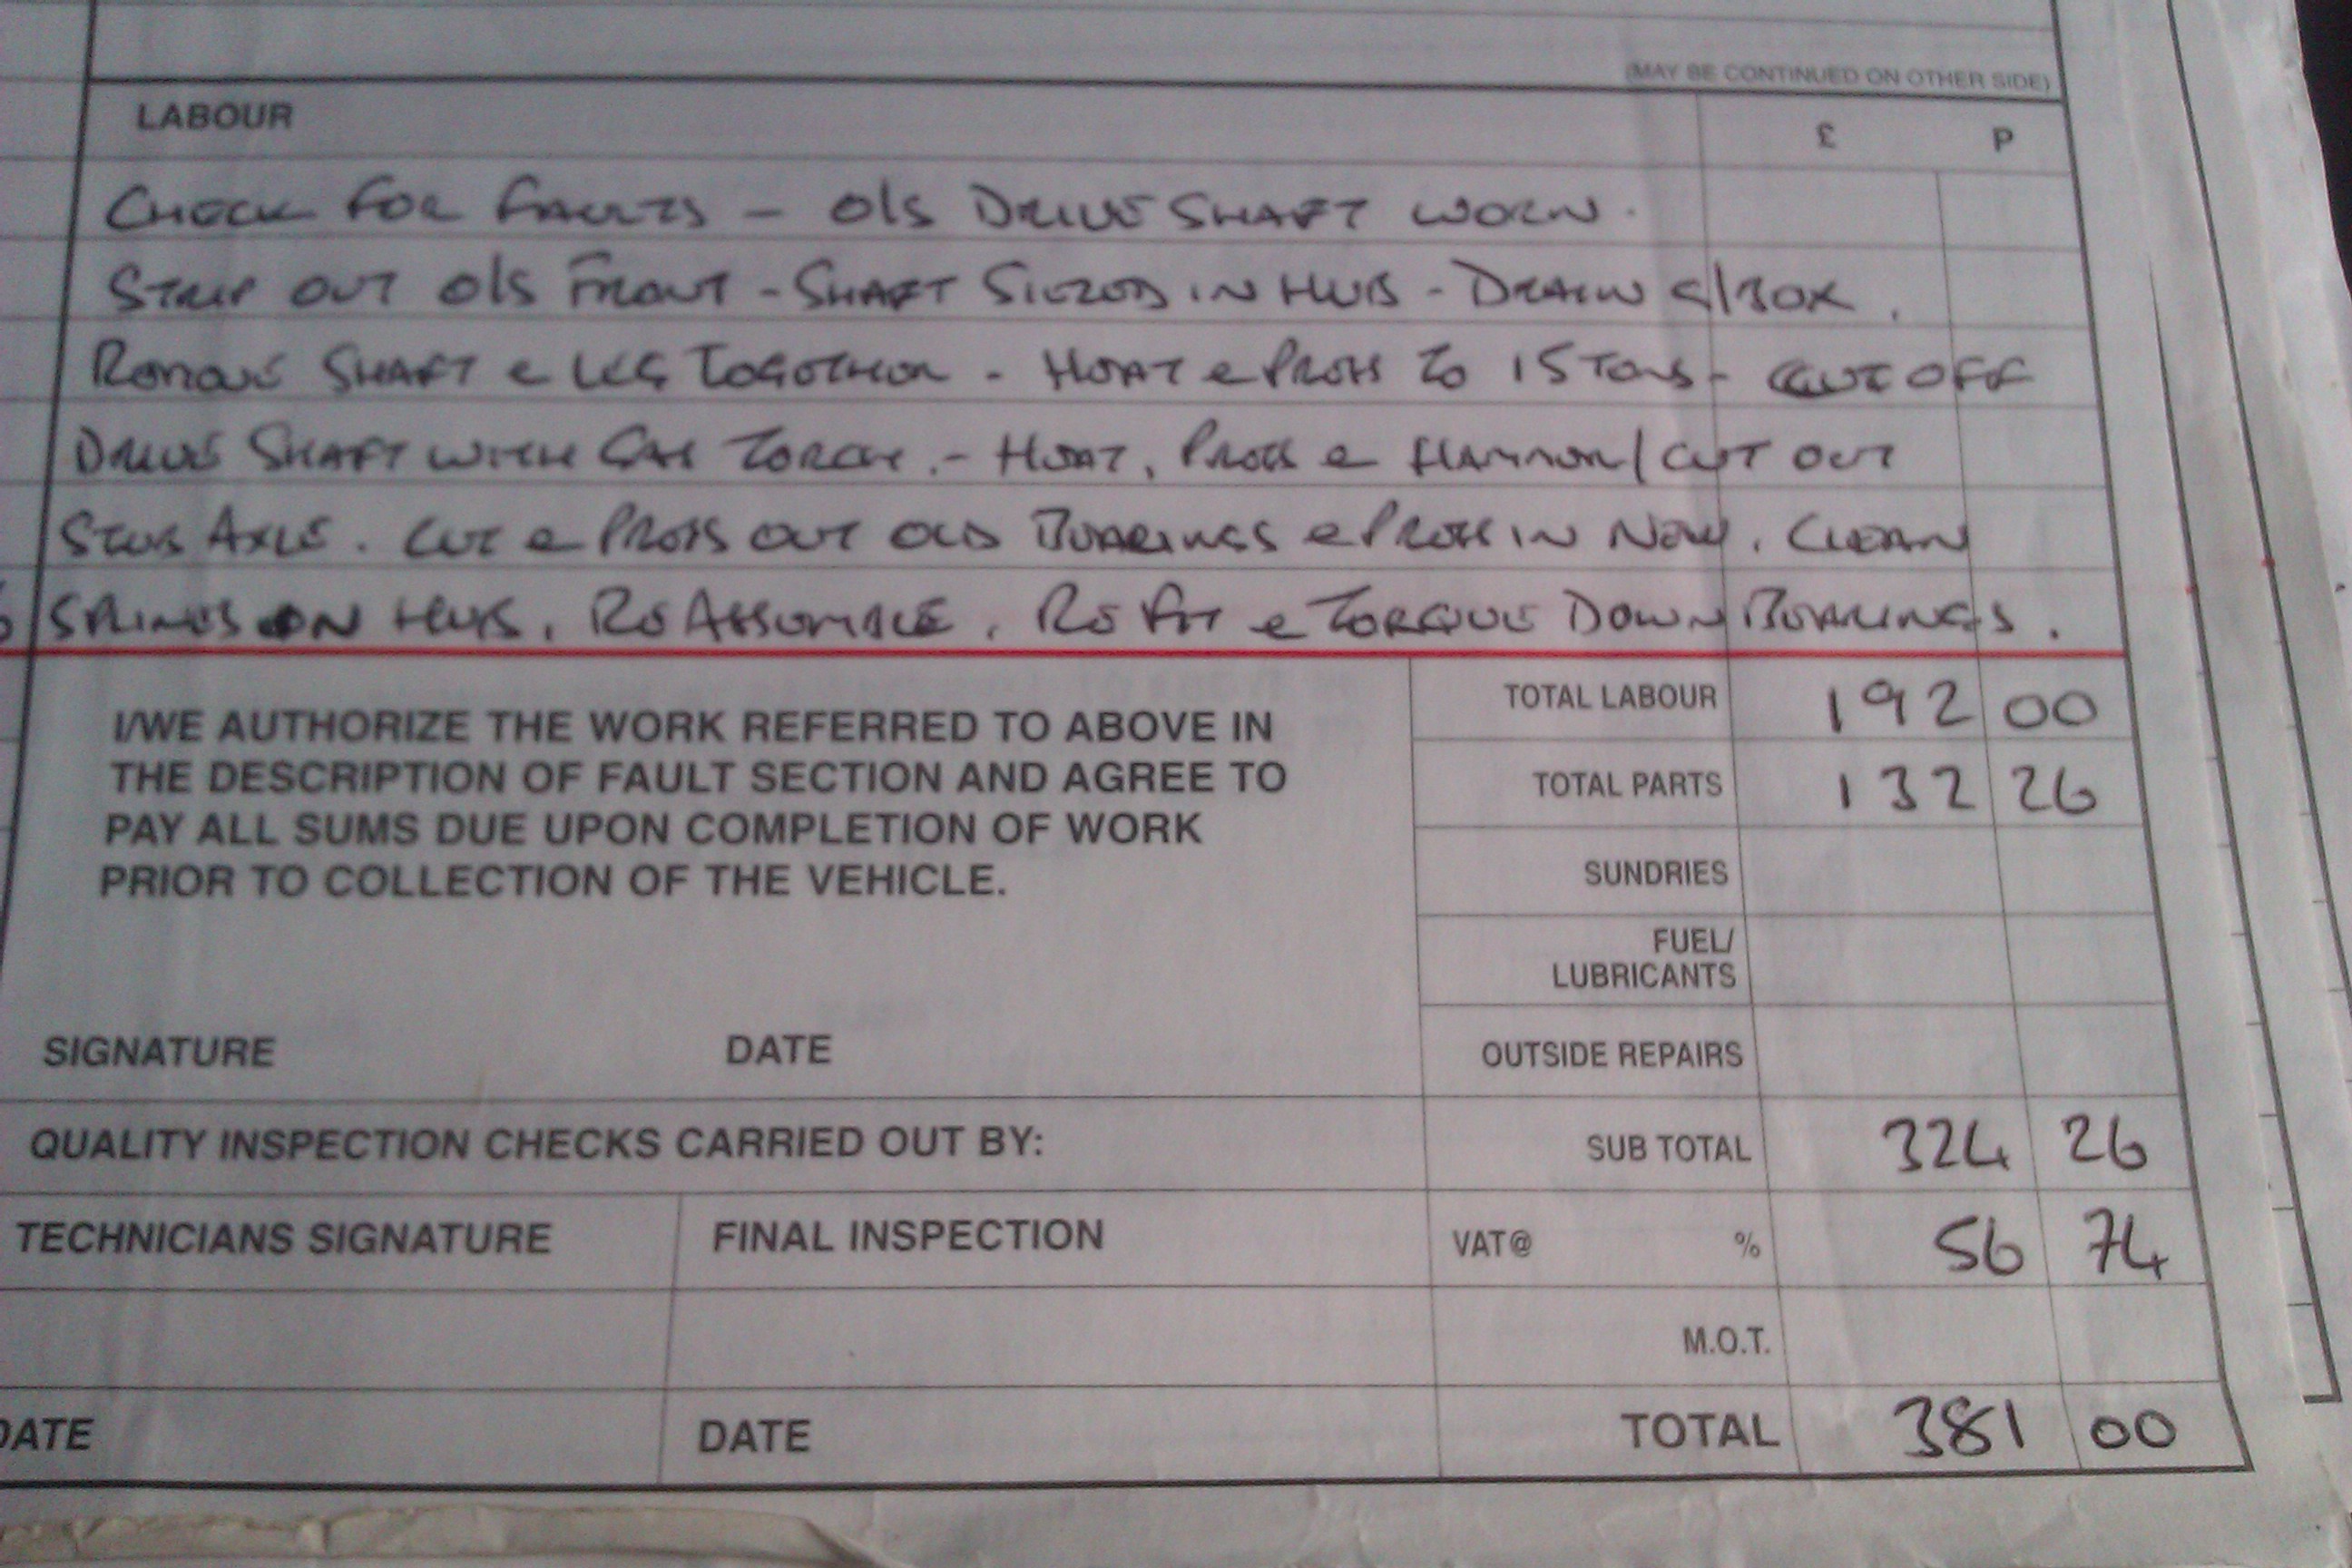 (MAY BE CONTINUED ON OTHER SIDE)
LABOUR £ P
CHECK FOR FAULTS - O/S DRIVE SHAFT WORN.
STRIP OUT O/S FRONT - SHAFT SIEZED IN HUB - DRAIN G/BOX.
REMOVE SHAFT & LEG TOGETHER - HEAT & PRESS TO 15 TONS - CUT OFF
DRIVE SHAFT WITH GAS TORCH. - HEAT, PRESS & HAMMER/CUT OUT
STUB AXLE. CUT & PRESS OUT OLD BEARINGS & PRESS IN NEW. CLEAN
SPLINES ON HUB, RE ASSEMBLE, RE FIT & TORQUE DOWN BEARINGS.
I/WE AUTHORIZE THE WORK REFERRED TO ABOVE IN
THE DESCRIPTION OF FAULT SECTION AND AGREE TO
PAY ALL SUMS DUE UPON COMPLETION OF WORK
PRIOR TO COLLECTION OF THE VEHICLE.
SIGNATURE DATE
TOTAL LABOUR 192 00
TOTAL PARTS 132 26
SUNDRIES
FUEL/
LUBRICANTS
OUTSIDE REPAIRS
QUALITY INSPECTION CHECKS CARRIED OUT BY:
SUB TOTAL 324 26
TECHNICIANS SIGNATURE FINAL INSPECTION
VAT@ % 56 74
M.O.T.
DATE DATE
TOTAL 381 00